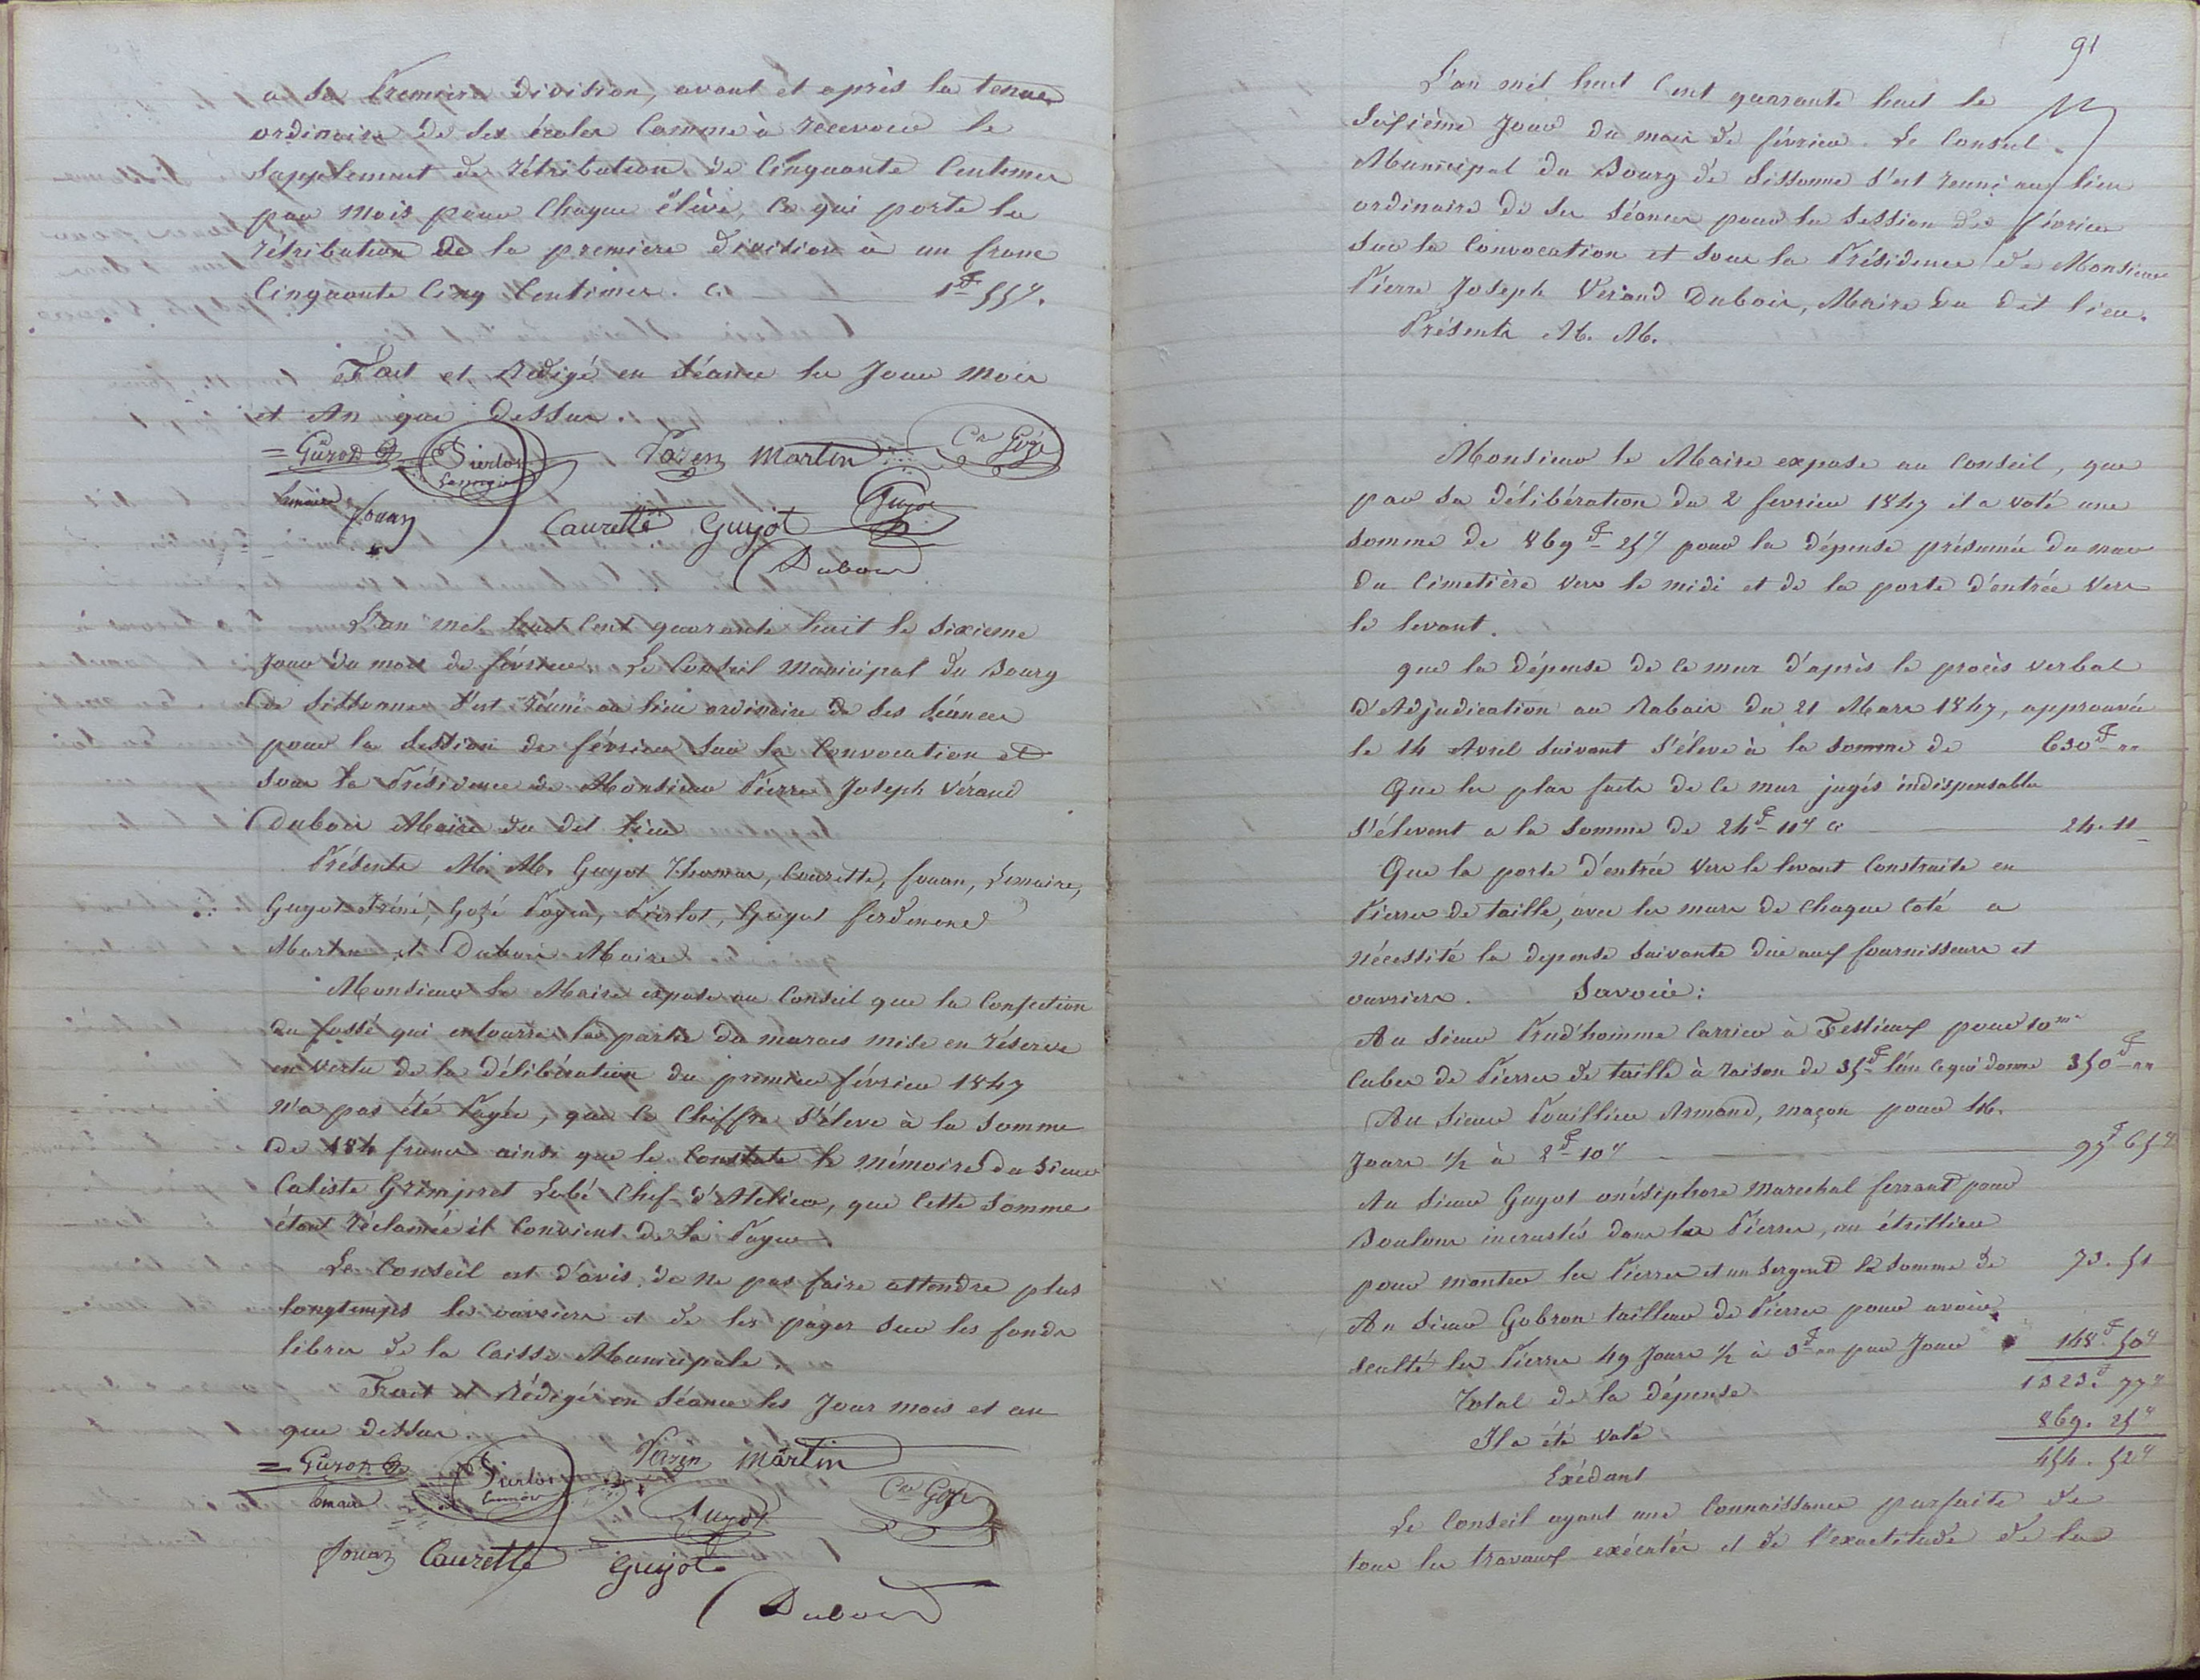 a sa Premiere division, avant et après la tenue
ordinaire de ses écoles Comme à recevoir le
Supplement de rétribution de Cinquante Centimes
par Mois pour Chaque élève, Ce qui porte la
rétribution de la premiere division à un franc
Cinquante Cinq Centimes. Ci 1f 55c.
Fait et Rédigé en Séance les Jour Mois
et An que dessus.
Pierlot Payen Martin Cre Gozé
Lemaire fouan Caurette Guyot Guyot
Dubois
L'an mil huit Cent quarante huit le Sixieme
Jour du mois de février. Le Conseil Municipal du Bourg
de Sissonne s'est réuni au lieu ordinaire de Ses Séances
pour la Session de février Sur la Convocation et
Sous la Présidence de Monsieur Pierre Joseph Véraud
Dubois Maire du dit lieu
Présents M. M. Guyot Thomas, Caurette, fouan, Lemaire,
Guyot Iréné, Gozé Payen, Pierlot, Guyot ferdinand
Martin et Dubois Maire
Monsieur Le Maire expose au Conseil que la Confection
du fossé qui entourre la partie du marais mise en réserve
en vertu de la délibération du premier février 1847
N'a pas été Payée, que Ce Chiffre S'éleve à la Somme
de 184 francs ainsi que le Constate le Mémoire du Sieur
Caliste Grimpret Lubé Chef-d'Atelier, que Cette Somme
étant réclamée il Convient de la Payer.
Le Conseil est d'avis de Ne pas faire attendre plus
longtemps les ouvriers et de les payer Sur les fonds
libres de la Caisse Municipale.
Fait et Rédigé en Séance les Jour mois et an
que dessus.
Pierlot Payen Martin
Lemaire Guyot Cre Gozé
fouan Caurette Guyot
Dubois
91
L'an mil huit Cent quarante huit le
Sixième Jour du mois de février. Le Conseil
Municipal du Bourg de Sissonne s'est réuni au lieu
ordinaire de Ses Séances pour la Session de février
Sur la Convocation et Sous la Présidence de Monsieur
Pierre Joseph Véraud Dubois, Maire du dit lieu.
Présents M. M.
Monsieur le Maire expose au Conseil, que
par Sa délibération du 2 fevrier 1847 il a voté une
Somme de 869f 25c pour la dépense présumée du mur
du Cimetière vers le midi et de la porte d'entrée vers
le levant.
que la dépense de Ce mur d'après le procès verbal
d'Adjudication au Rabais du 21 Mars 1847, approuvée
le 14 Avril Suivant S'éleve à la Somme de 630f "
Que les plus faits de Ce mur jugés indispensables
S'élevent a la Somme de 24f 11c Ci 24. 11
Que la porte d'entrée vers le levant Construite en
Pierres de taille, avec les murs de Chaque Coté a
nécessité la depense Suivante due aux fournisseurs et
ouvriers. Savoir:
Au Sieur Prud'homme Carrier à Festieux pour 10m
Cubes de Pierres de taille à raison de 35f l'un Ce qui donne 350f "
Au Sieur Pouillier Armand, maçon pour 46
Jours 1/2 à 2f 10c 97f 65c
Au Sieur Guyot onésiphore Marechal ferrant pour
Boulons incrustés dans les Pierres, un étrillier
pour monter les Pierres et un Sergent la Somme de 73. 51
Au Sieur Gobron tailleur de Pierres pour avoir
Sculté les Pierres 49 Jours 1/2 à 3f " par Jour 148f 50c
Total de la dépense 1323f 77c
Il a été voté 869. 25c
Exédant 454. 52c
Le Conseil ayant une Connaissance parfaite de
tous les travaux exécutés et de l'exactitude de la